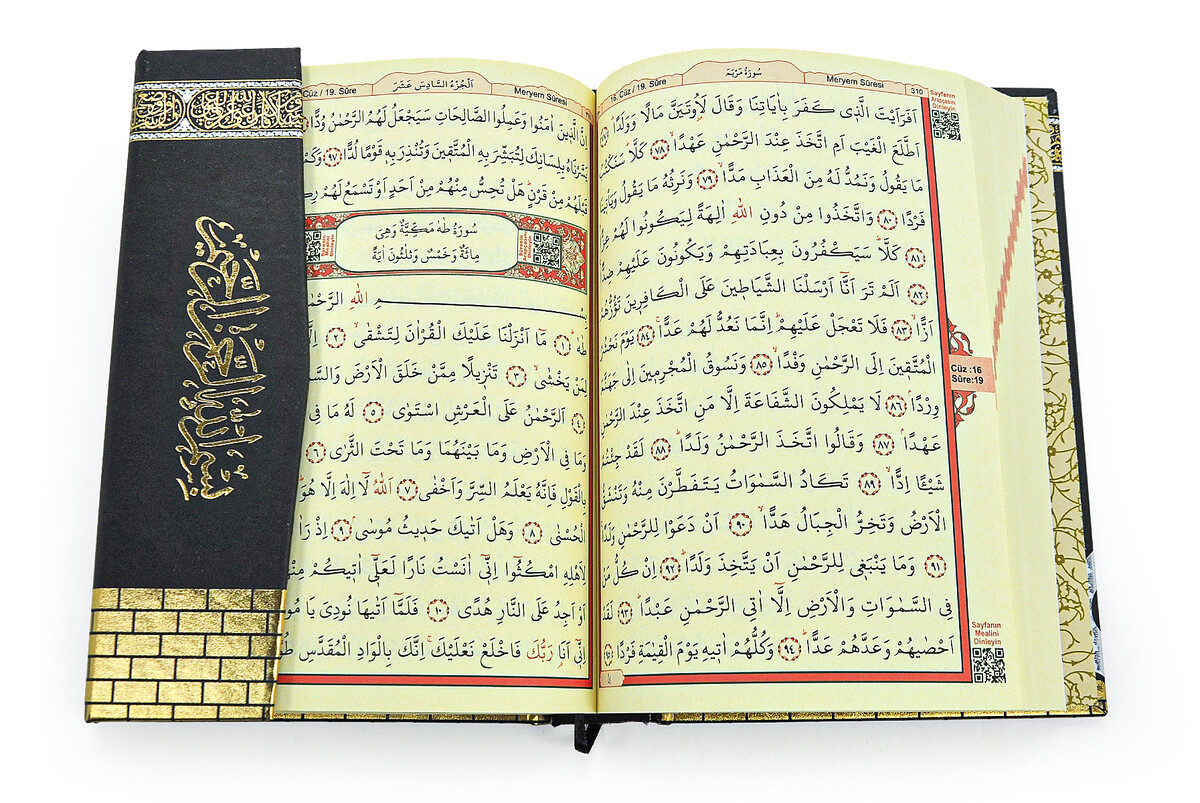 310 Meryem Sûresi سُورَةُ مَرْيَمَ 16. Cüz / 19. Sûre
Sayfanın
Arapçasını
Dinleyin
اَفَرَاَيْتَ الَّذ۪ي كَفَرَ بِاٰيَاتِنَا وَقَالَ لَاُو۫تَيَنَّ مَالًا وَوَلَدًاۜ
اَطَّلَعَ الْغَيْبَ اَمِ اتَّخَذَ عِنْدَ الرَّحْمٰنِ عَهْدًاۙ ﴿٧٨﴾ كَلَّاۜ
مَا يَقُولُ وَنَمُدُّ لَهُ مِنَ الْعَذَابِ مَدًّاۙ ﴿٧٩﴾ وَنَرِثُهُ مَا يَقُولُ
فَرْدًا ﴿٨٠﴾ وَاتَّخَذُوا مِنْ دُونِ اللّٰهِ اٰلِهَةً لِيَكُونُوا لَهُمْ
﴿٨١﴾ كَلَّاۜ سَيَكْفُرُونَ بِعِبَادَتِهِمْ وَيَكُونُونَ عَلَيْهِمْ
﴿٨٢﴾ اَلَمْ تَرَ اَنَّٓا اَرْسَلْنَا الشَّيَاط۪ينَ عَلَى الْكَافِر۪ينَ
اَزًّاۙ ﴿٨٣﴾ فَلَا تَعْجَلْ عَلَيْهِمْۜ اِنَّمَا نَعُدُّ لَهُمْ عَدًّاۚ ﴿٨٤﴾ يَوْمَ
الْمُتَّق۪ينَ اِلَى الرَّحْمٰنِ وَفْدًاۙ ﴿٨٥﴾ وَنَسُوقُ الْمُجْرِم۪ينَ اِلٰى
وِرْدًاۢ ﴿٨٦﴾ لَا يَمْلِكُونَ الشَّفَاعَةَ اِلَّا مَنِ اتَّخَذَ عِنْدَ الرَّحْمٰنِ
عَهْدًاۢ ﴿٨٧﴾ وَقَالُوا اتَّخَذَ الرَّحْمٰنُ وَلَدًاۜ ﴿٨٨﴾ لَقَدْ
شَيْـًٔا اِدًّاۙ ﴿٨٩﴾ تَكَادُ السَّمٰوَاتُ يَتَفَطَّرْنَ مِنْهُ
الْاَرْضُ وَتَخِرُّ الْجِبَالُ هَدًّاۙ ﴿٩٠﴾ اَنْ دَعَوْا لِلرَّحْمٰنِ
﴿٩١﴾ وَمَا يَنْبَغ۪ي لِلرَّحْمٰنِ اَنْ يَتَّخِذَ وَلَدًاۜ ﴿٩٢﴾ اِنْ كُلُّ
فِي السَّمٰوَاتِ وَالْاَرْضِ اِلَّٓا اٰتِي الرَّحْمٰنِ عَبْدًاۜ ﴿٩٣﴾
اَحْصٰيهُمْ وَعَدَّهُمْ عَدًّاۜ ﴿٩٤﴾ وَكُلُّهُمْ اٰت۪يهِ يَوْمَ الْقِيٰمَةِ فَرْدًا
Cüz :16
Sûre:19
Sayfanın
Mealini
Dinleyin
Meryem Sûresi اَلْجُزْءُ السَّادِسَ عَشَرَ Cüz / 19. Sûre
اِنَّ الَّذ۪ينَ اٰمَنُوا وَعَمِلُوا الصَّالِحَاتِ سَيَجْعَلُ لَهُمُ الرَّحْمٰنُ وُدًّا
بِلِسَانِكَ لِتُبَشِّرَ بِهِ الْمُتَّق۪ينَ وَتُنْذِرَ بِه۪ قَوْمًا لُدًّا ﴿٩٧﴾
قَبْلَهُمْ مِنْ قَرْنٍۜ هَلْ تُحِسُّ مِنْهُمْ مِنْ اَحَدٍ اَوْ تَسْمَعُ لَهُمْ
سُورَةُ طٰهٰ مَكِّيَّةٌ وَهِيَ
مِائَةٌ وَخَمْسٌ وَثَلٰثُونَ اٰيَةً
بِسْمِ اللّٰهِ
طٰهٰۜ ﴿١﴾ مَٓا اَنْزَلْنَا عَلَيْكَ الْقُرْاٰنَ لِتَشْقٰىۙ ﴿٢﴾
لِمَنْ يَخْشٰىۙ ﴿٣﴾ تَنْز۪يلًا مِمَّنْ خَلَقَ الْاَرْضَ
﴿٤﴾ اَلرَّحْمٰنُ عَلَى الْعَرْشِ اسْتَوٰى ﴿٥﴾ لَهُ مَا فِي
وَمَا فِي الْاَرْضِ وَمَا بَيْنَهُمَا وَمَا تَحْتَ الثَّرٰى ﴿٦﴾
بِالْقَوْلِ فَاِنَّهُ يَعْلَمُ السِّرَّ وَاَخْفٰى ﴿٧﴾ اَللّٰهُ لَٓا اِلٰهَ اِلَّا هُوَۜ
الْحُسْنٰى ﴿٨﴾ وَهَلْ اَتٰيكَ حَد۪يثُ مُوسٰىۢ ﴿٩﴾ اِذْ
لِاَهْلِهِ امْكُثُٓوا اِنّ۪ٓي اٰنَسْتُ نَارًا لَعَلّ۪ٓي اٰت۪يكُمْ
اَوْ اَجِدُ عَلَى النَّارِ هُدًى ﴿١٠﴾ فَلَمَّٓا اَتٰيهَا نُودِيَ يَا
اِنّ۪ٓي اَنَا۬ رَبُّكَ فَاخْلَعْ نَعْلَيْكَۚ اِنَّكَ بِالْوَادِ الْمُقَدَّسِ
بسم الله الرحمن الرحيم